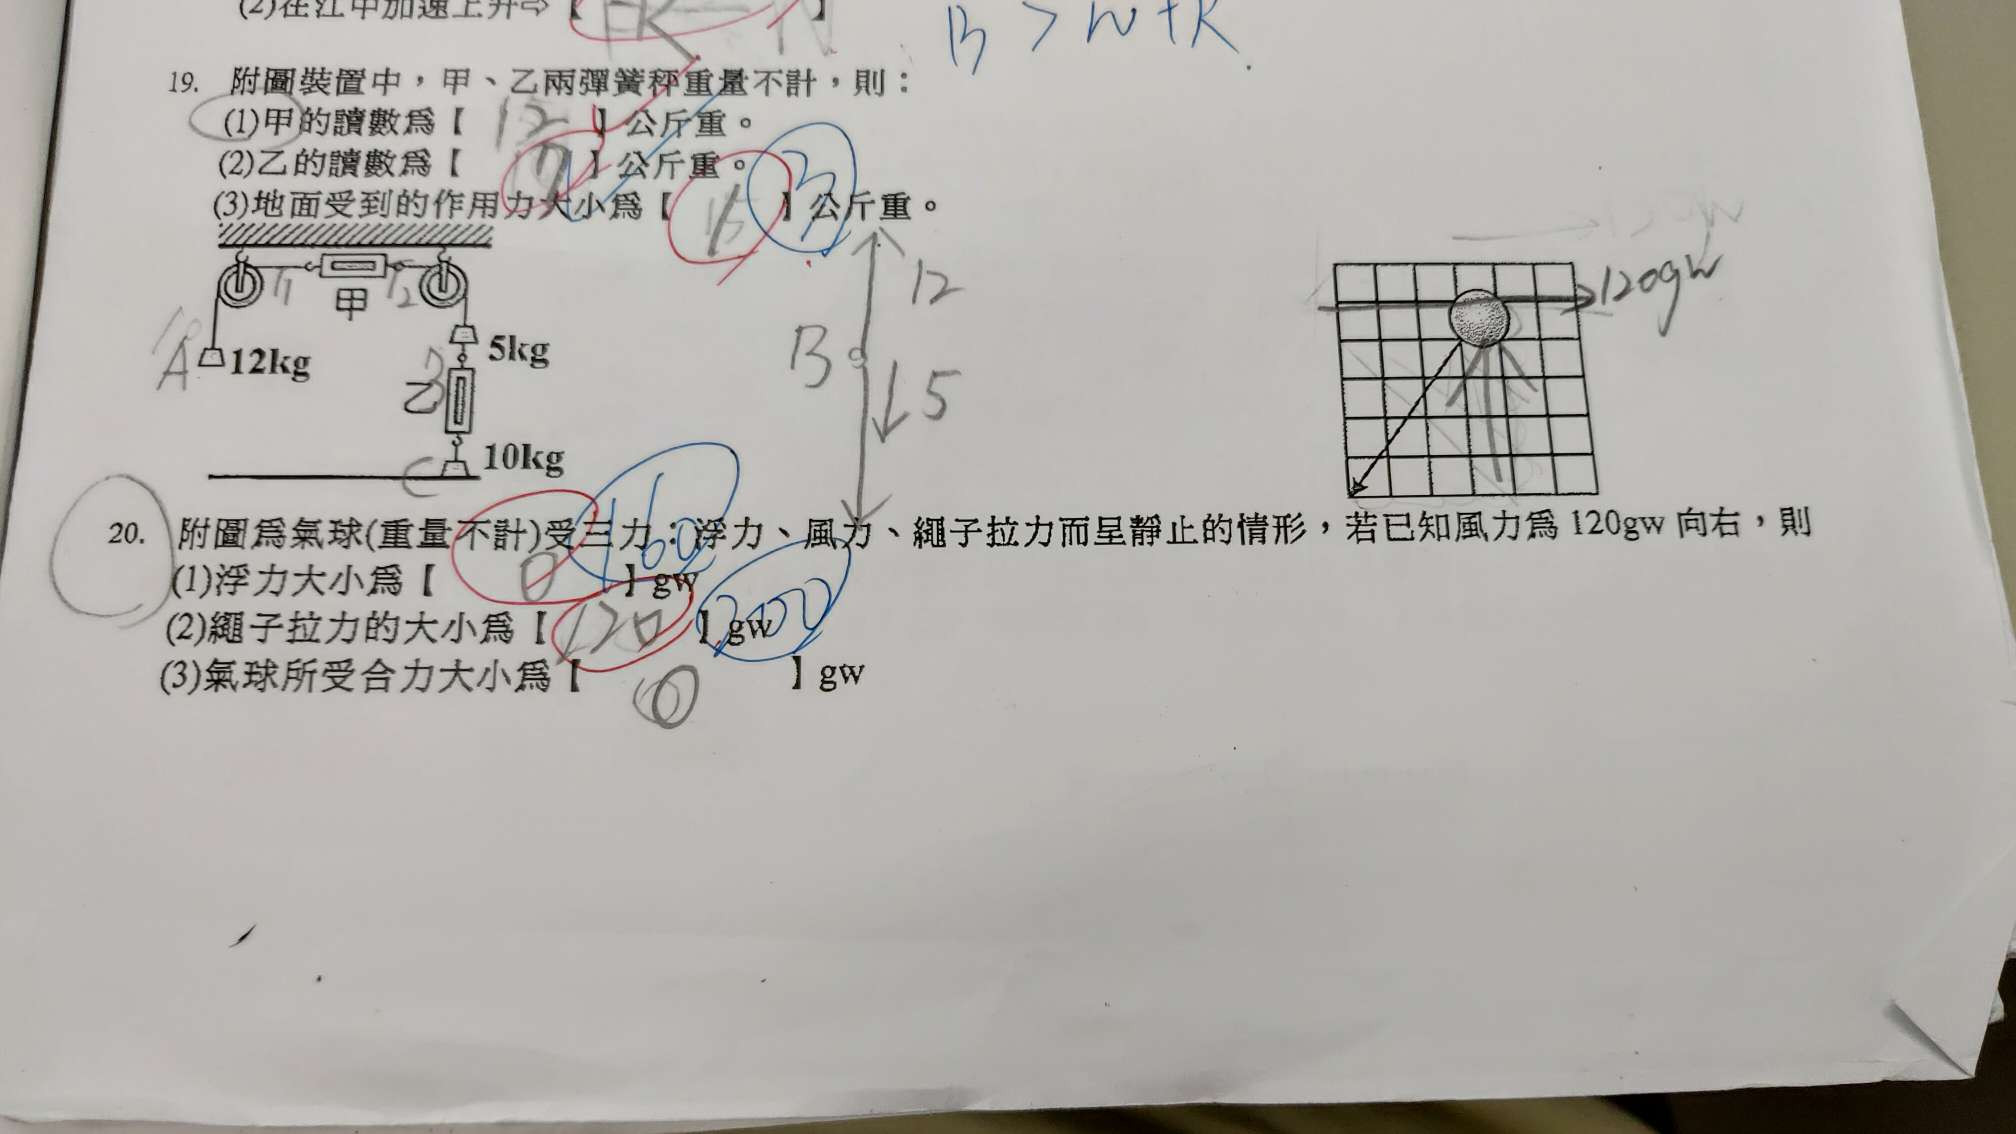 (2)在江中加速上升⇨【 】
B > W + R
19. 附圖裝置中，甲、乙兩彈簧秤重量不計，則：
(1)甲的讀數爲【 12 】公斤重。
(2)乙的讀數爲【 】公斤重。
(3)地面受到的作用力大小爲【 15 】公斤重。 3
甲
12kg
A
5kg
乙
10kg
C
12
B
5
120gw
20. 附圖爲氣球(重量不計)受三力：浮力、風力、繩子拉力而呈靜止的情形，若已知風力爲 120gw 向右，則
(1)浮力大小爲【 0 】gw 160
(2)繩子拉力的大小爲【 120 】gw 200
(3)氣球所受合力大小爲【 0 】gw